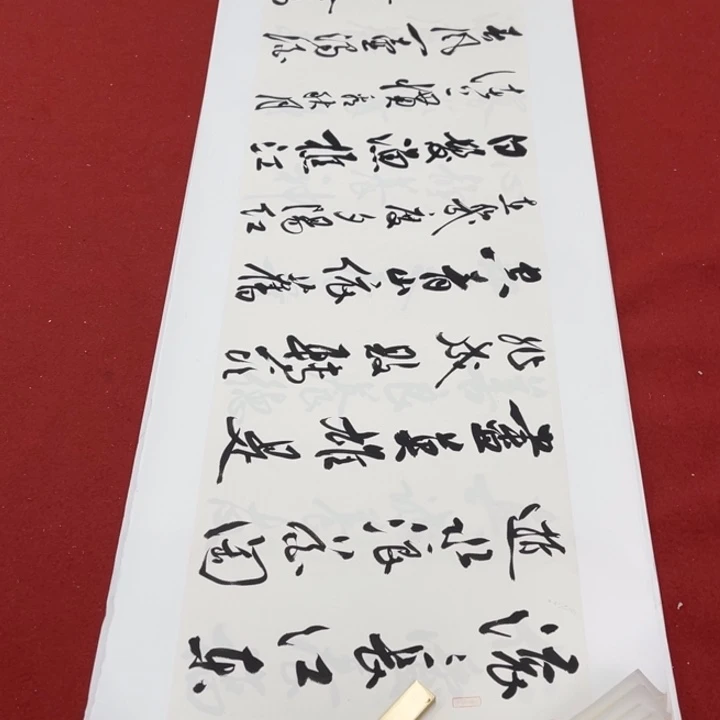 滚〻长江东
逝水浪花淘
尽英雄是
非成败转头
空青山依旧
在几度夕阳红
白发渔樵江
渚上惯看秋月
春风一壶浊酒